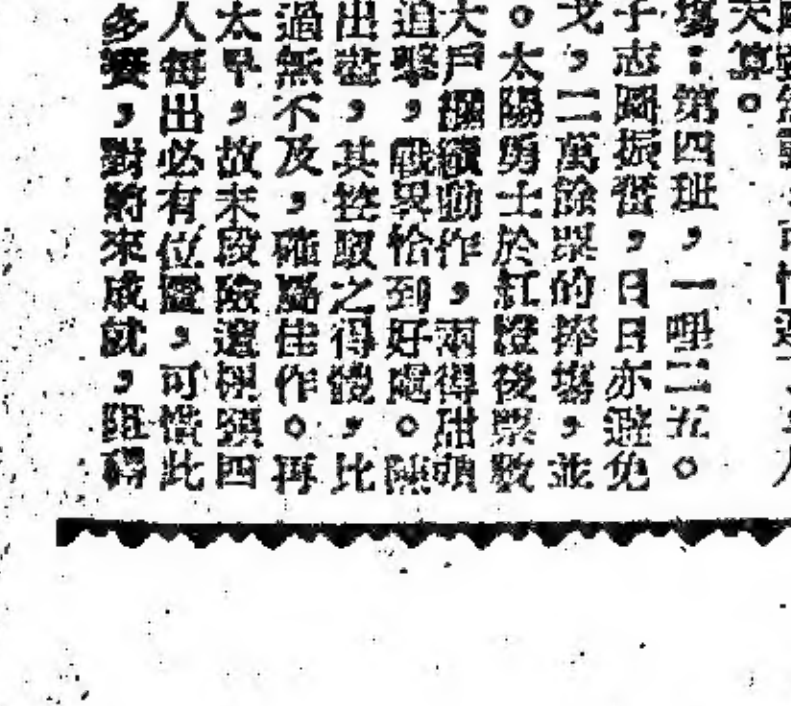 天算。
塲：第四班，一哩二五。
子志圖振奮，日日亦避免
戈，二萬餘票的捧塲，並
。太陽勇士於紅燈後票數
大戶繼續動作，兩得甜頭
追擊，戰畧恰到好處。陳
出發，其控取之得饒，比
過無不及，確屬佳作。再
太早，故末段險遭棋頭四
人每出必有位置，可惜此
多賽，對將來成就，阻碍